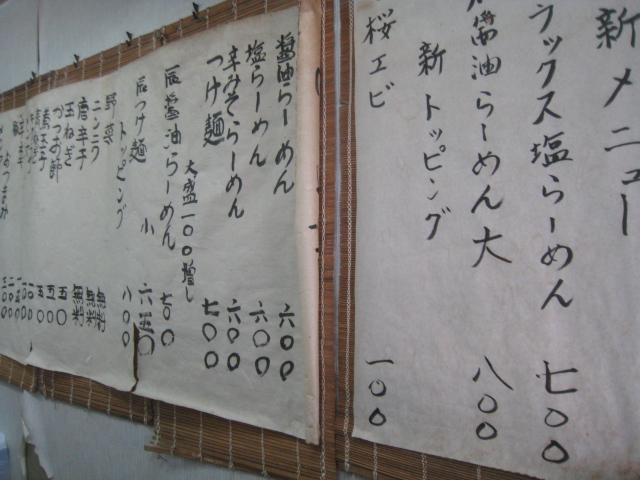 新メニュー
ラックス塩らーめん 七〇〇
醤油らーめん大 八〇〇
新トッピング
桜エビ 一〇〇
醤油らーめん 六〇〇
塩らーめん 六〇〇
辛みそらーめん 六〇〇
つけ麺 七〇〇
大盛一〇〇増し
辰醤油らーめん 七〇〇
小 六五〇
辰つけ麺 八〇〇
トッピング
野菜 無料
ニンニク 無料
唐辛子 無料
玉ねぎ 五〇
かつお節 五〇
煮玉子 五〇
おつまみ